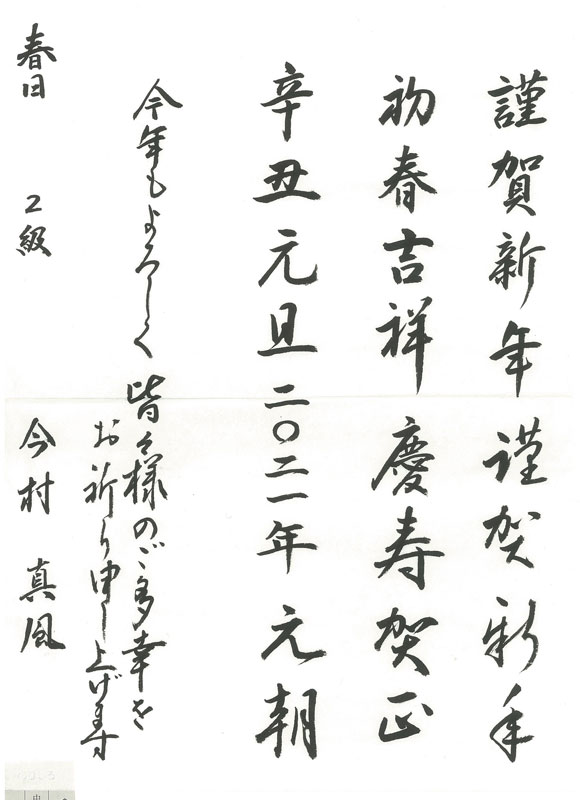 謹賀新年 謹賀新年
初春吉祥 慶寿 賀正
辛丑元旦 二〇二一年 元朝
今年もよろしく 皆々様のご多幸を
お祈り申し上げます
春日 2級 今村 真風